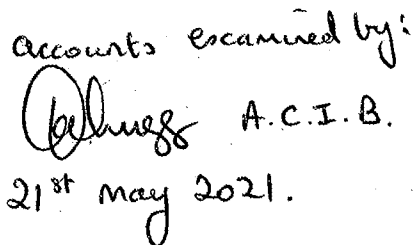 accounts examined by:
A.C.I.B.
21st May 2021.